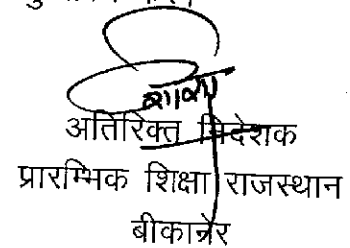 अतिरिक्त निदेशक
प्रारम्भिक शिक्षा राजस्थान
बीकानेर